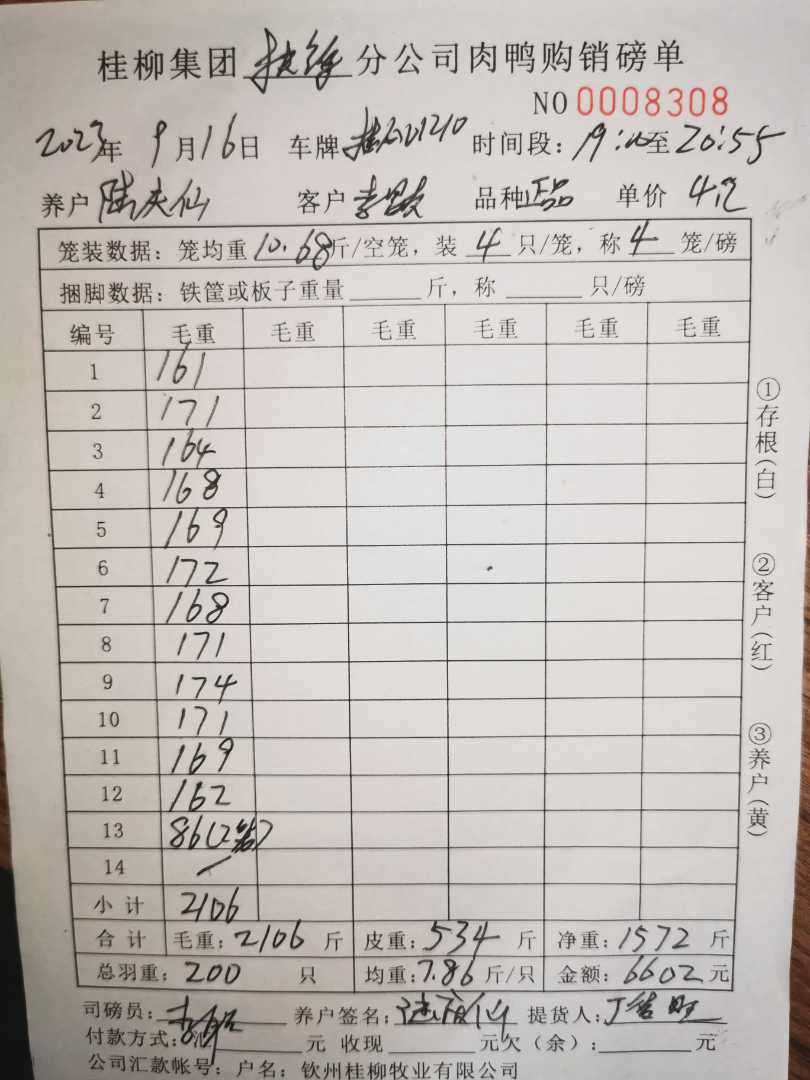 桂柳集团 分公司肉鸭购销磅单
NO 0008308
2023年 9月16日 车牌: 时间段: 19:00至20:55
养户 陆庆仙 客户 李 品种 正品 单价 4.2
笼装数据: 笼均重 10.68 斤/空笼, 装 4 只/笼, 称 4 笼/磅
捆脚数据: 铁筐或板子重量______斤, 称______只/磅
编号 毛重 毛重 毛重 毛重 毛重 毛重
1 161
2 171
3 164
4 168
5 169
6 172
7 168
8 171
9 174
10 171
11 169
12 162
13 86(2笼)
14
小计 2106
合计 毛重: 2106 斤 皮重: 534 斤 净重: 1572 斤
总羽重: 200 只 均重: 7.86 斤/只 金额: 6602 元
司磅员: 养户签名: 提货人:
付款方式: 汇______元 收现______元欠(余):______元
公司汇款帐号: 户名: 钦州桂柳牧业有限公司
①存根(白)
②客户(红)
③养户(黄)